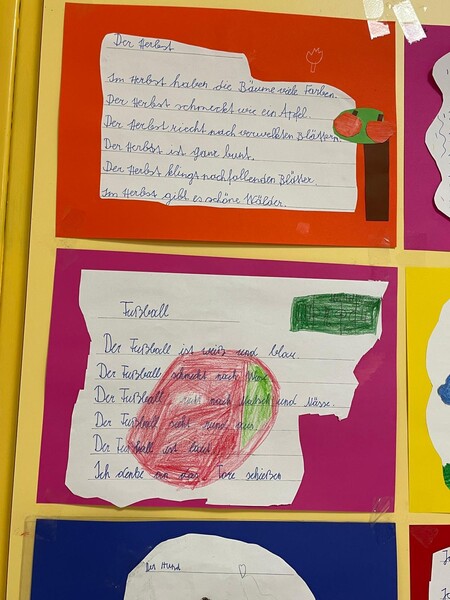 Der Herbst
Im Herbst haben die Bäume viele Farben.
Der Herbst schmeckt wie ein Apfel.
Der Herbst riecht nach verwelkten Blättern.
Der Herbst ist ganz bunt.
Der Herbst klingt nach fallenden Blätter.
Im Herbst gibt es schöne Wälder.
Fußball
Der Fußball ist weiß und blau.
Der Fußball schmeckt nach Wiese.
Der Fußball riecht nach Matsch und Nässe.
Der Fußball sieht rund aus.
Der Fußball ist
Ich denke an das Tore schießen
Der Hund